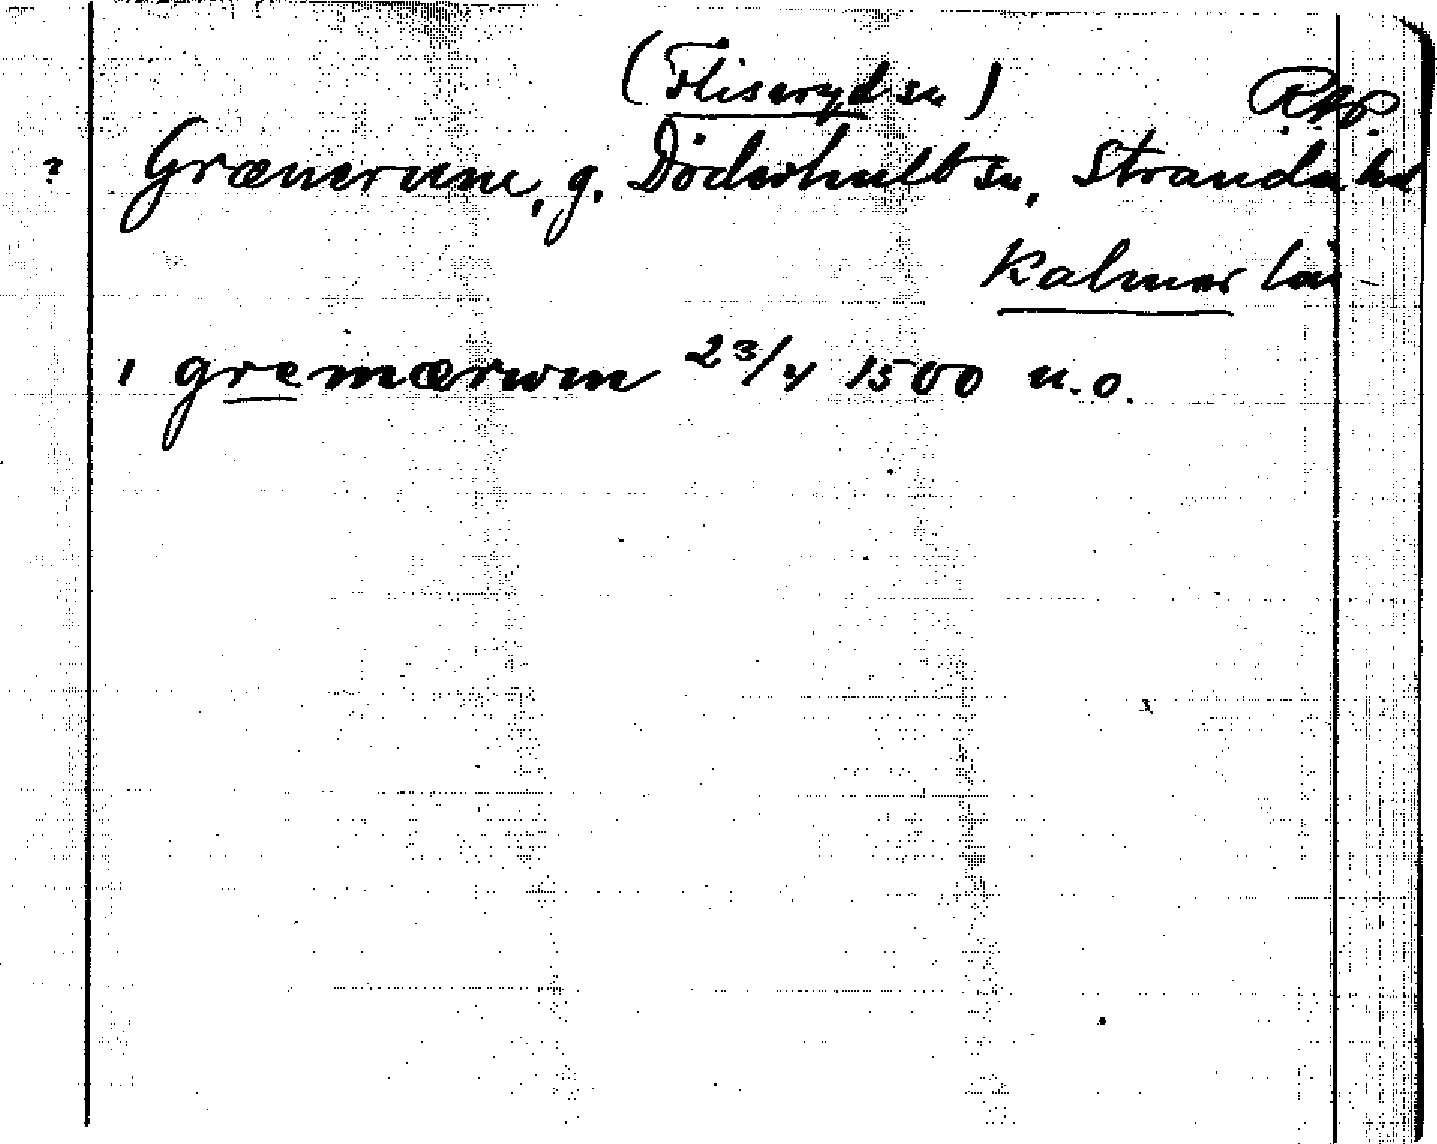 (Fliseryd sn)
Rgp.
? Grænerune, g. Döderhult sn, Stranda hd
Kalmar län
, gremærwm 23/4 1500 u.o.